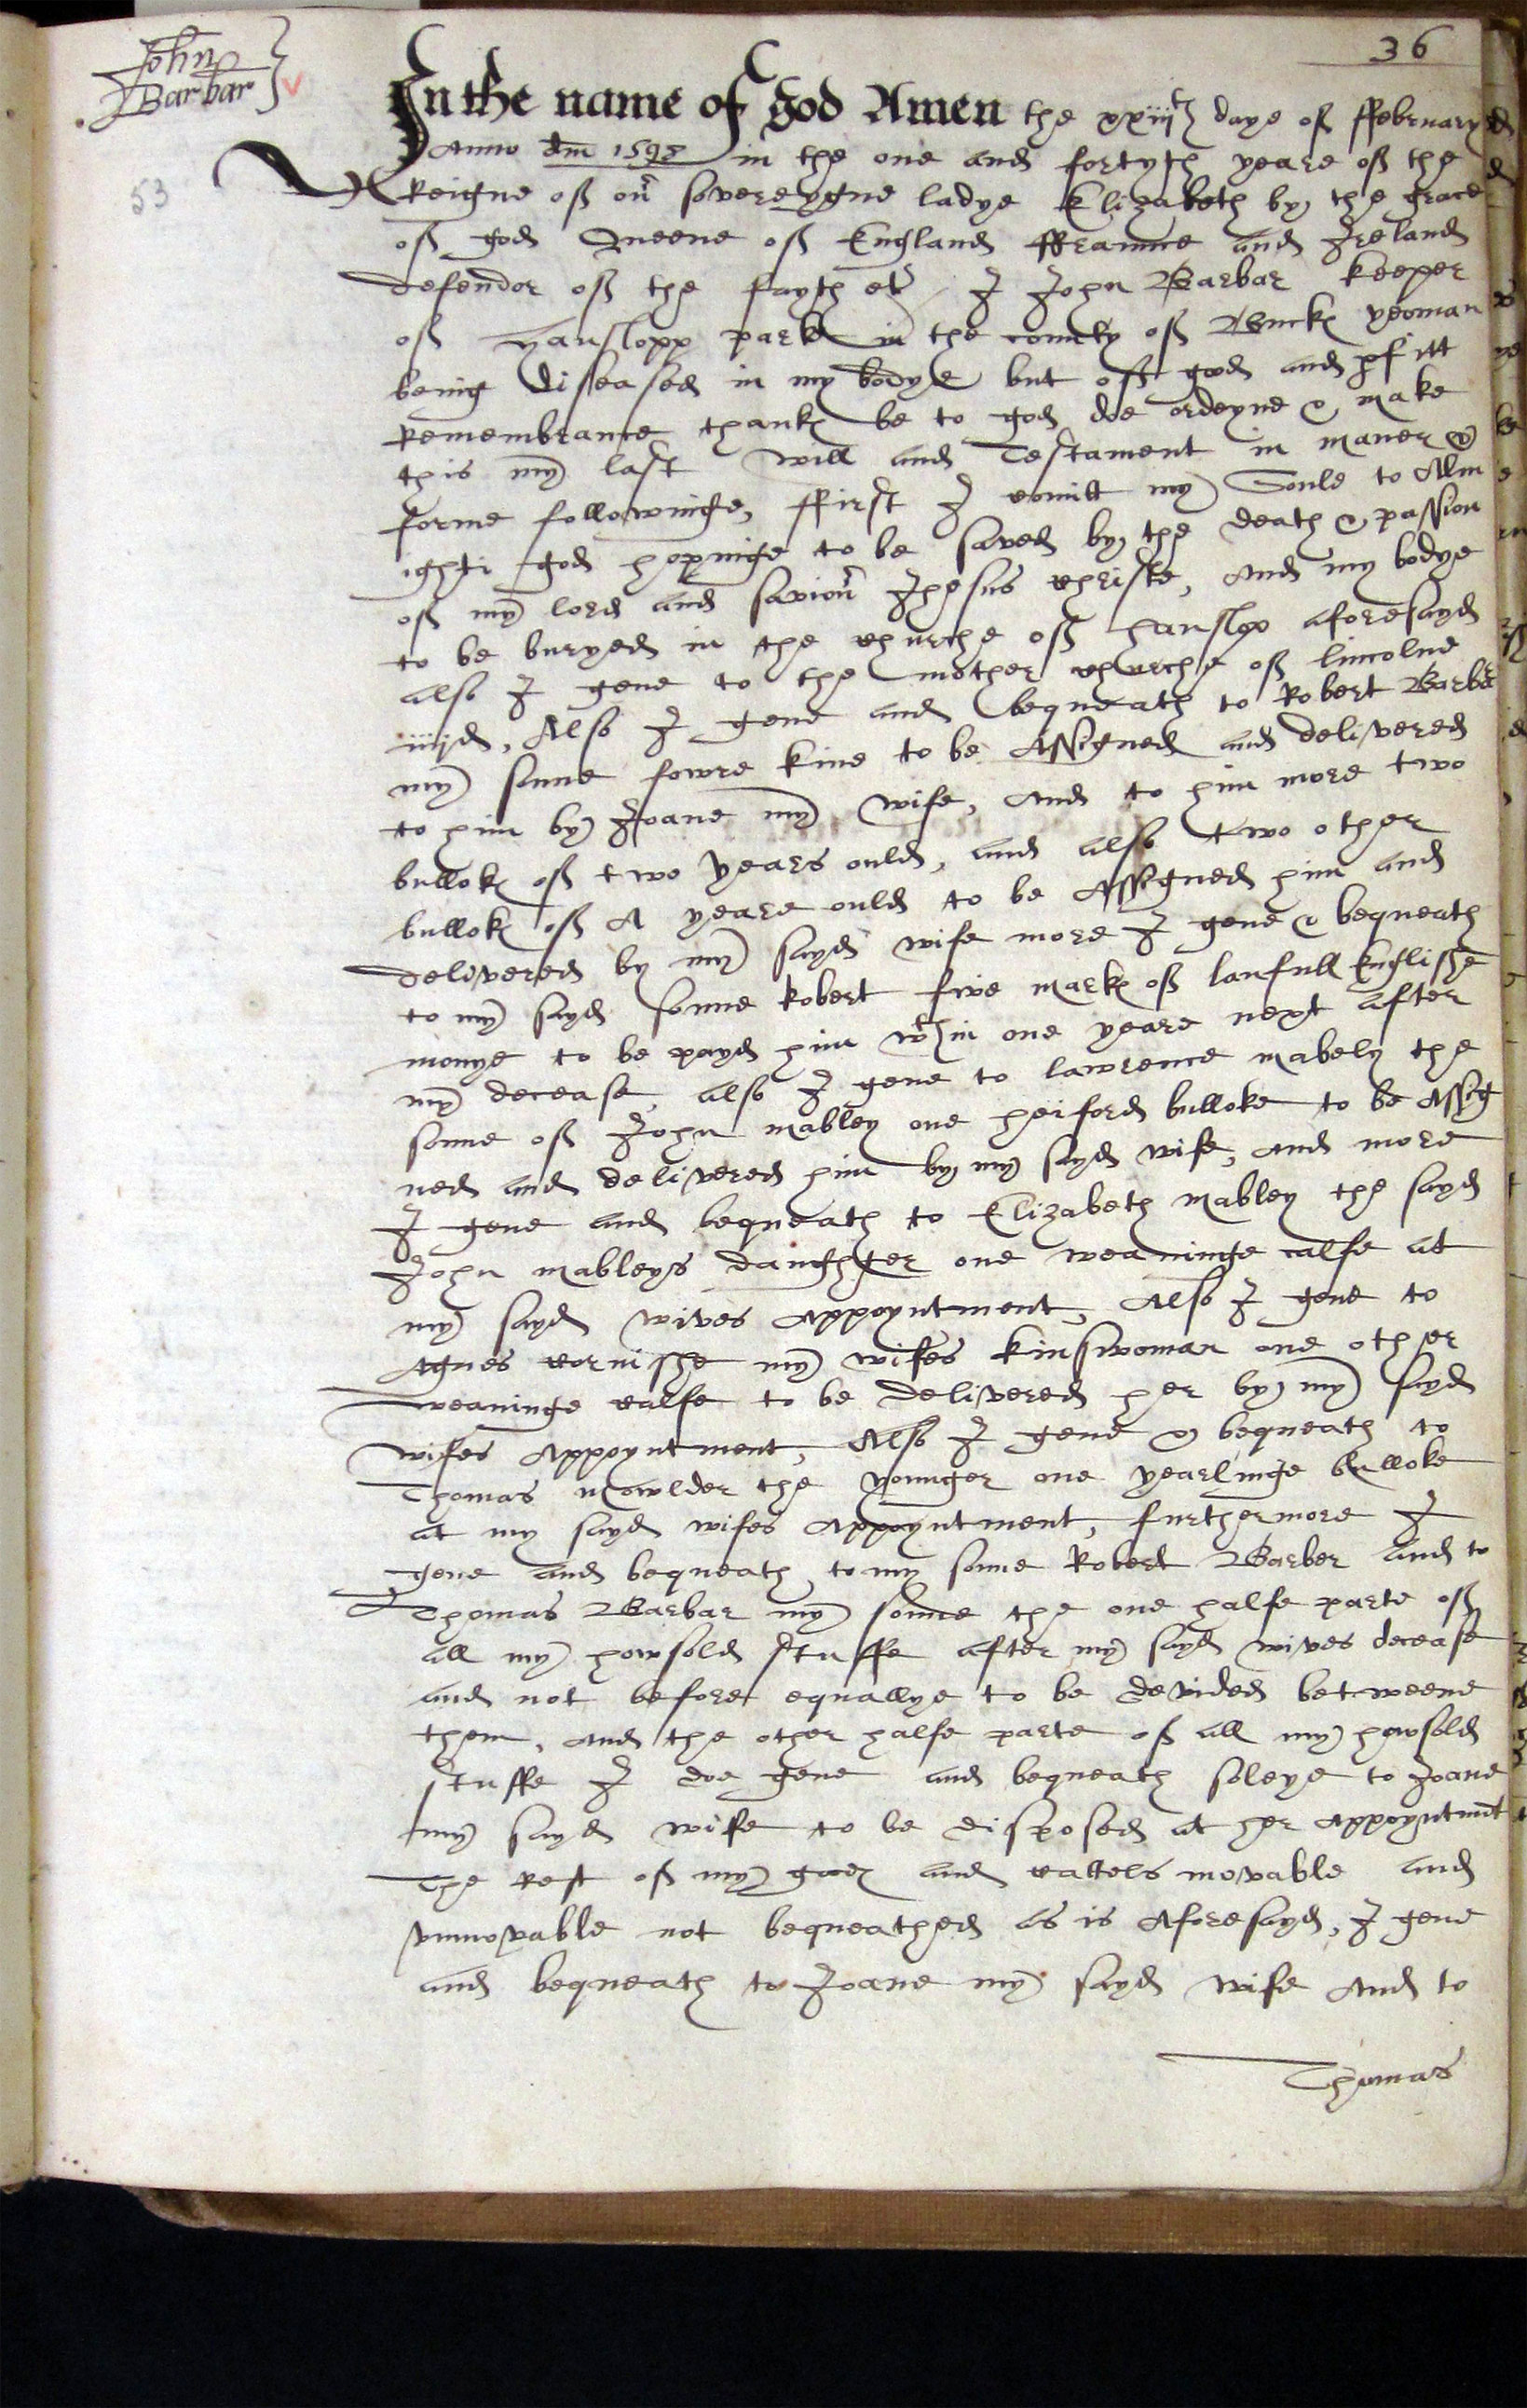 36
John
Barbar
53
In the name of god Amen the xxiijth daye of ffebruary
Anno dm 1598 in the one and fortyth yeare of the
Reigne of our sovereygne ladye Elizabeth by the grace
of god Queene of England ffraunce and Ireland
defendor of the fayth etc I John Barbar keeper
of Hanslopp parke in the county of Buck yeoman
being diseased in my bodye but of good and pfitt
Remembrance thank be to god doe ordeyne & make
this my last will and Testament in maner &
forme followinge, ffirst I comitt my Soule to Alm
ighti god hopinge to be saved by the death & passion
of my lord and saviour Jhesus christe, and my bodye
to be buryed in the churche of hanslop aforesayd
also I geve to the mother churche of lincolne
iiijd, Also I geve and bequeath to Robert Barber
my sonne fowre kine to be Assigned and delivered
to him by Joane my wife, and to him more two
bullok of two years ould, and also two other
bullok of A yeare ould to be Assigned him and
delivered by my sayd wife more I geve & bequeath
to my sayd sonne Robert five mark of laufull Englishe
monye to be payd him wthin one yeare next after
my decease, also I geve to lawrence mabely the
sonne of John mabley one heiford bulloke to be Assig
ned and delivered him by my sayd wife, and more
I geve and bequeath to Elizabeth mabley the sayd
John mableys daughter one weaninge calfe at
my sayd wives appoyntment, Also I geve to
Agnes cornishe my wifes kinswoman one other
weaninge calfe to be delivered her by my sayd
wifes appoyntment, Also I geve & bequeath to
Thomas mowlder the younger one yearlinge bulloke
at my sayd wifes appoyntment, furthermore I
geve and bequeath to my sonne Robert Barber and to
Thomas Barbar my sonne the one halfe parte of
all my howsold stuffe after my sayd wives decease
and not before equallye to be devided betweene
them, and the other halfe parte of all my howsold
stuffe I doe geve and bequeath soleye to Joane
my sayd wife to be disposed at her appoyntmt
The rest of my good and cattels movable and
vnmovable not bequeathed as is aforesayd, I geve
and bequeath to Joane my sayd wife and to
Thomas